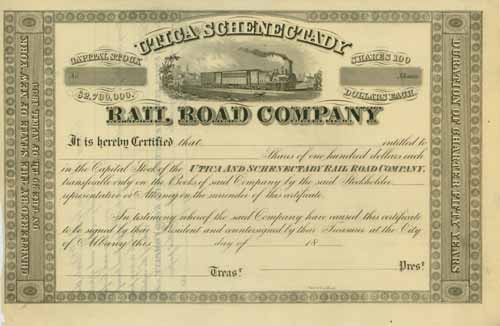 UTICA SCHENECTADY
CAPITAL STOCK
SHARES 100
No
Shares
$2,700,000.
DOLLARS EACH.
RAIL ROAD COMPANY
It is hereby Certified that entitled to
Shares of one hundred dollars each
in the Capital Stock of the UTICA AND SCHENECTADY RAIL ROAD COMPANY,
transferable only on the Books of said Company by the said Stockholder
representative or Attorney on the surrender of this certificate.
In testimony whereof the said Company have caused this certificate
to be signed by their President and countersigned by their Treasurer at the City
of Albany this day of 18
Treasr. Prest.
CHARTERED BY THE STATE OF NEW YORK
ON THE 29TH OF APRIL
DURATION OF CHARTER FIFTY YEARS